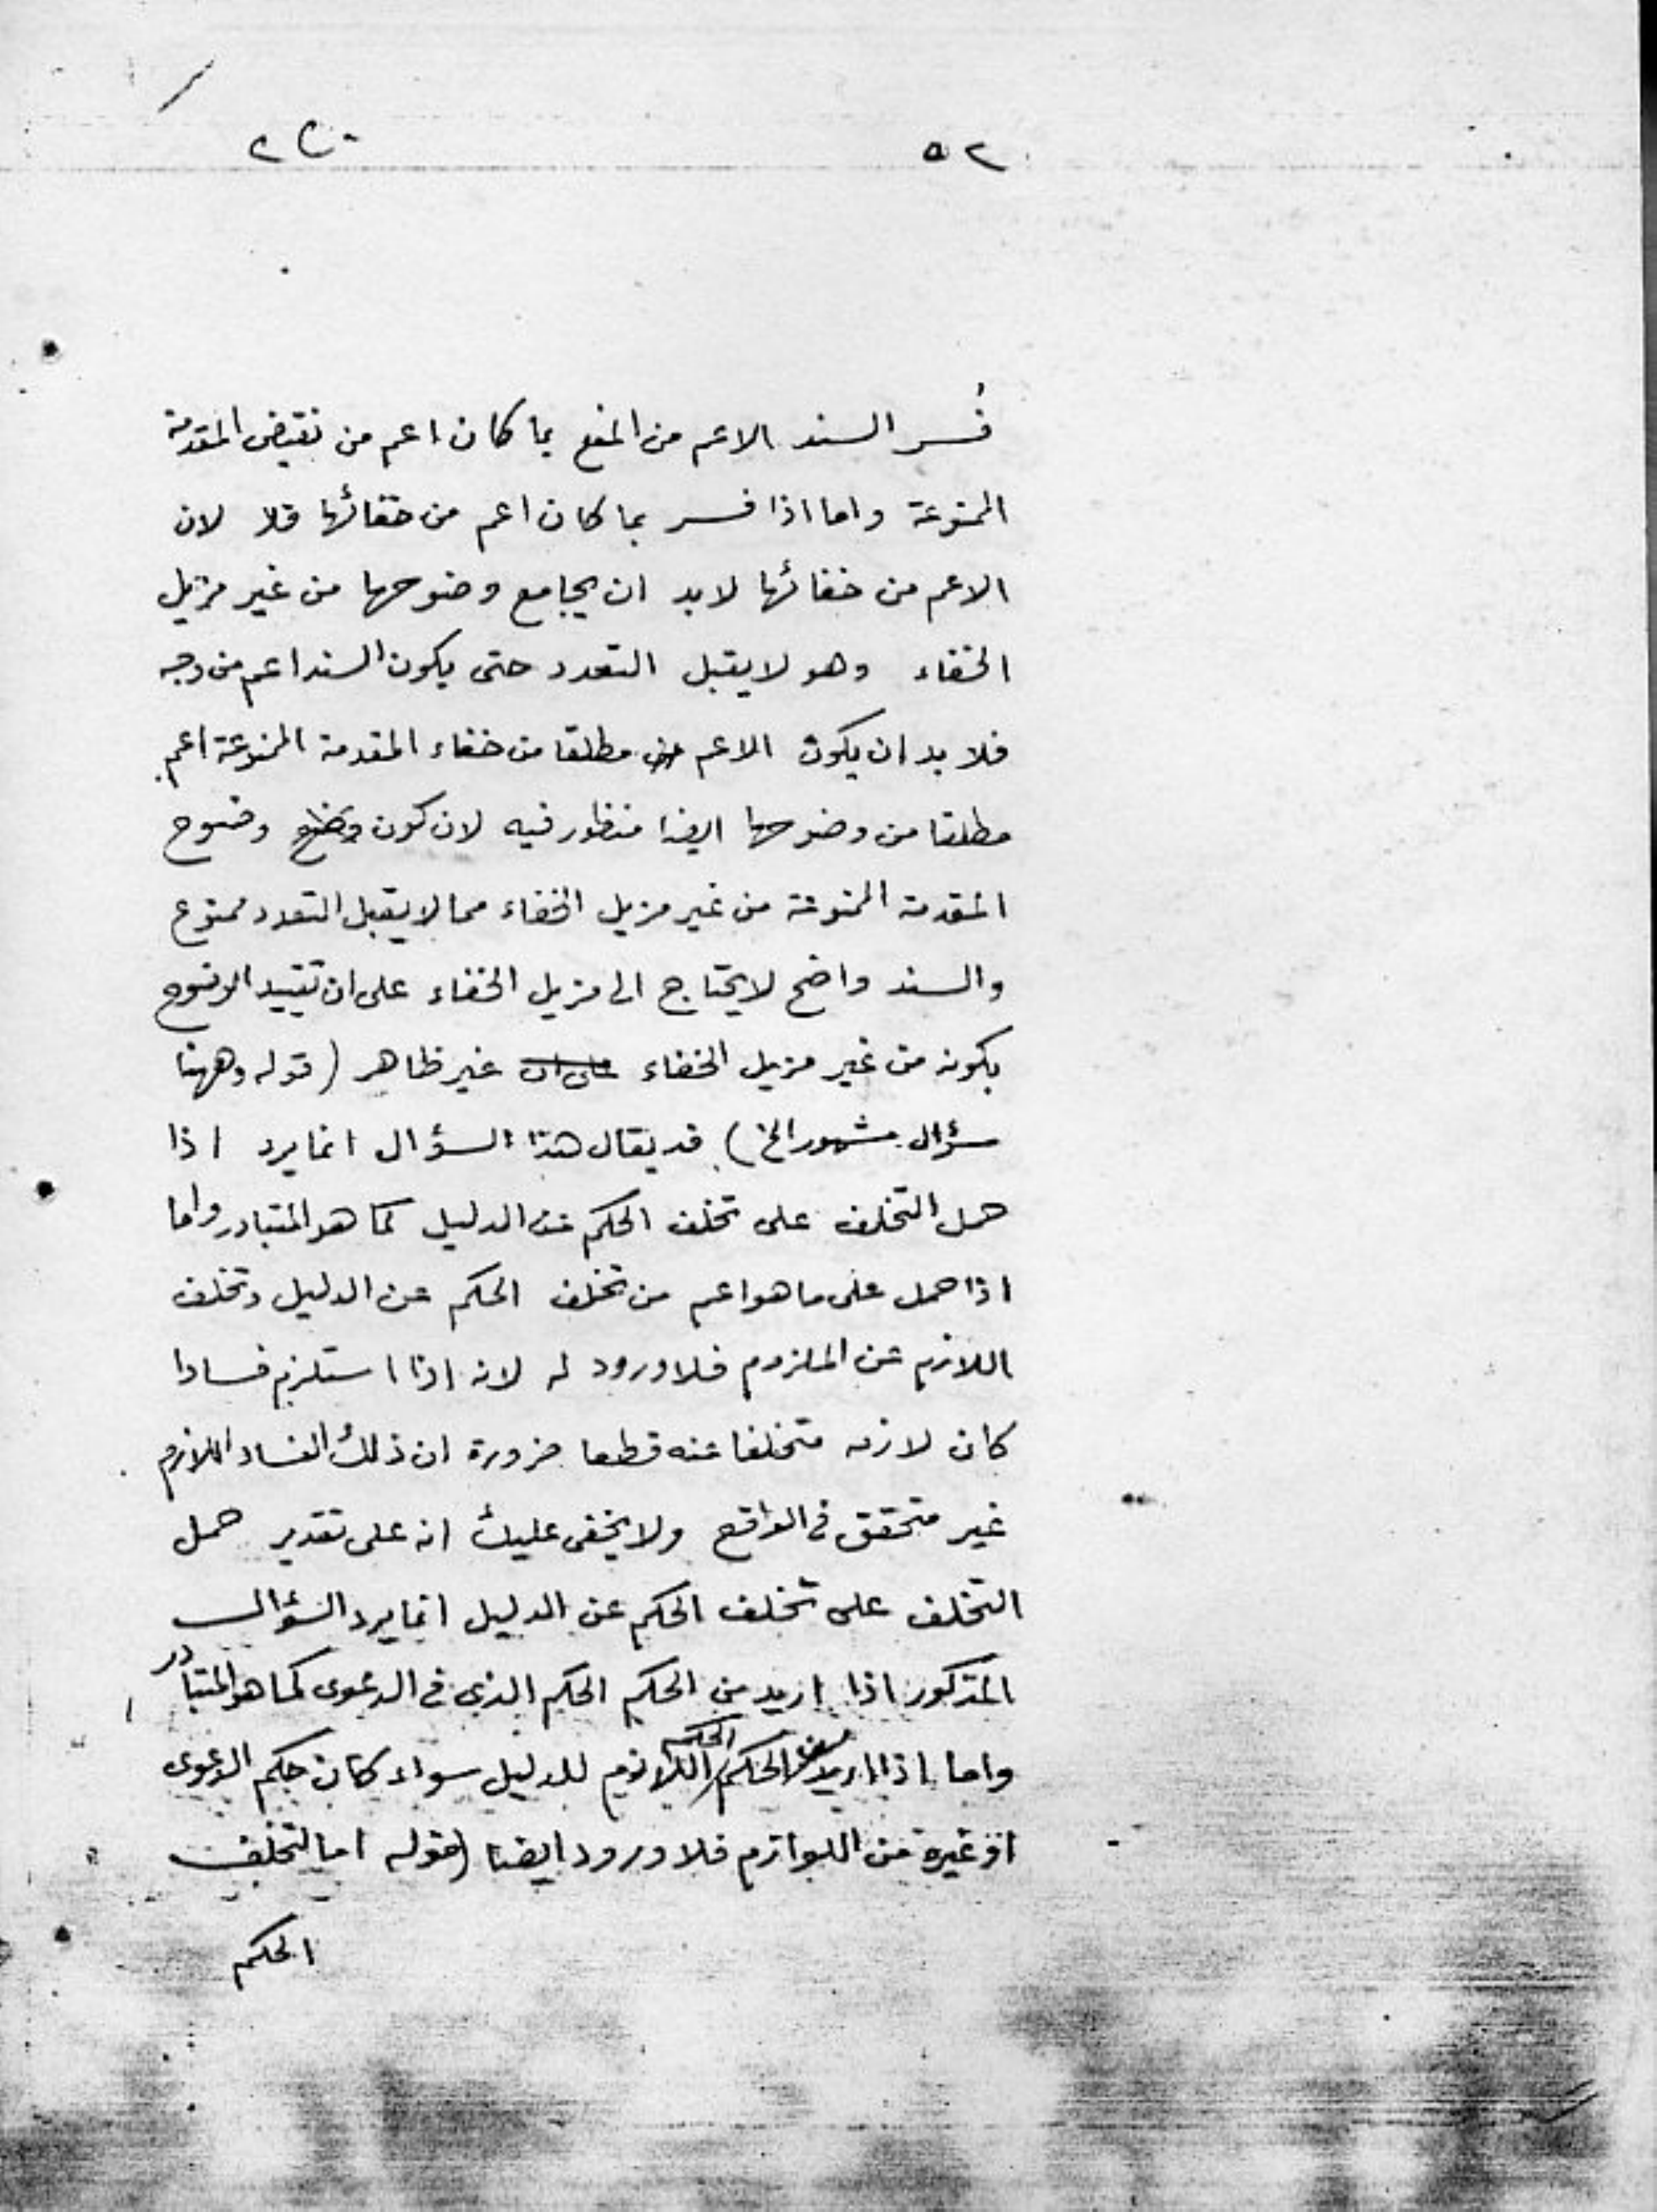 ٥٢
فُسر السند الاعم من المنع بما كان اعم من نقيض المقدمة
الممنوعة واما اذا فسر بما كان اعم من خفائها فلا لان
الاعم من خفائها لابد ان يجامع وضوحها من غير مزيل
الخفاء وهو لا يقبل التعدد حتى يكون السند اعم من وجه
فلا بد ان يكون الاعم مطلقا من خفاء المقدمة الممنوعة اعم
مطلقا من وضوحها ايضا منظور فيه لان كون وضوح
المقدمة الممنوعة من غير مزيل الخفاء مما لا يقبل التعدد ممنوع
والسند واضح لا يحتاج الى مزيل الخفاء على ان تقييد الوضوح
بكونه من غير مزيل الخفاء غير ظاهر (قوله وههنا
سؤال مشهور الخ) قد يقال هذا السؤال انما يرد اذا
حمل التخلف على تخلف الحكم عن الدليل كما هو المتبادر واما
اذا حمل على ما هو اعم من تخلف الحكم عن الدليل وتخلف
اللازم عن الملزوم فلا ورود له لانه اذا استلزم فسادا
كان لازمه متخلفا عنه قطعا ضرورة ان ذلك الفساد اللازم
غير متحقق فى الواقع ولا يخفى عليك انه على تقدير حمل
التخلف على تخلف الحكم عن الدليل انما يرد السؤال
المذكور اذا اريد من الحكم الحكم الذى فى الدعوى كما هو المتبادر
واما اذا اريد من الحكم الحكم اللازم للدليل سواء كان حكم الدعوى
او غيره من اللوازم فلا ورود ايضا (قوله اما لتخلف
الحكم